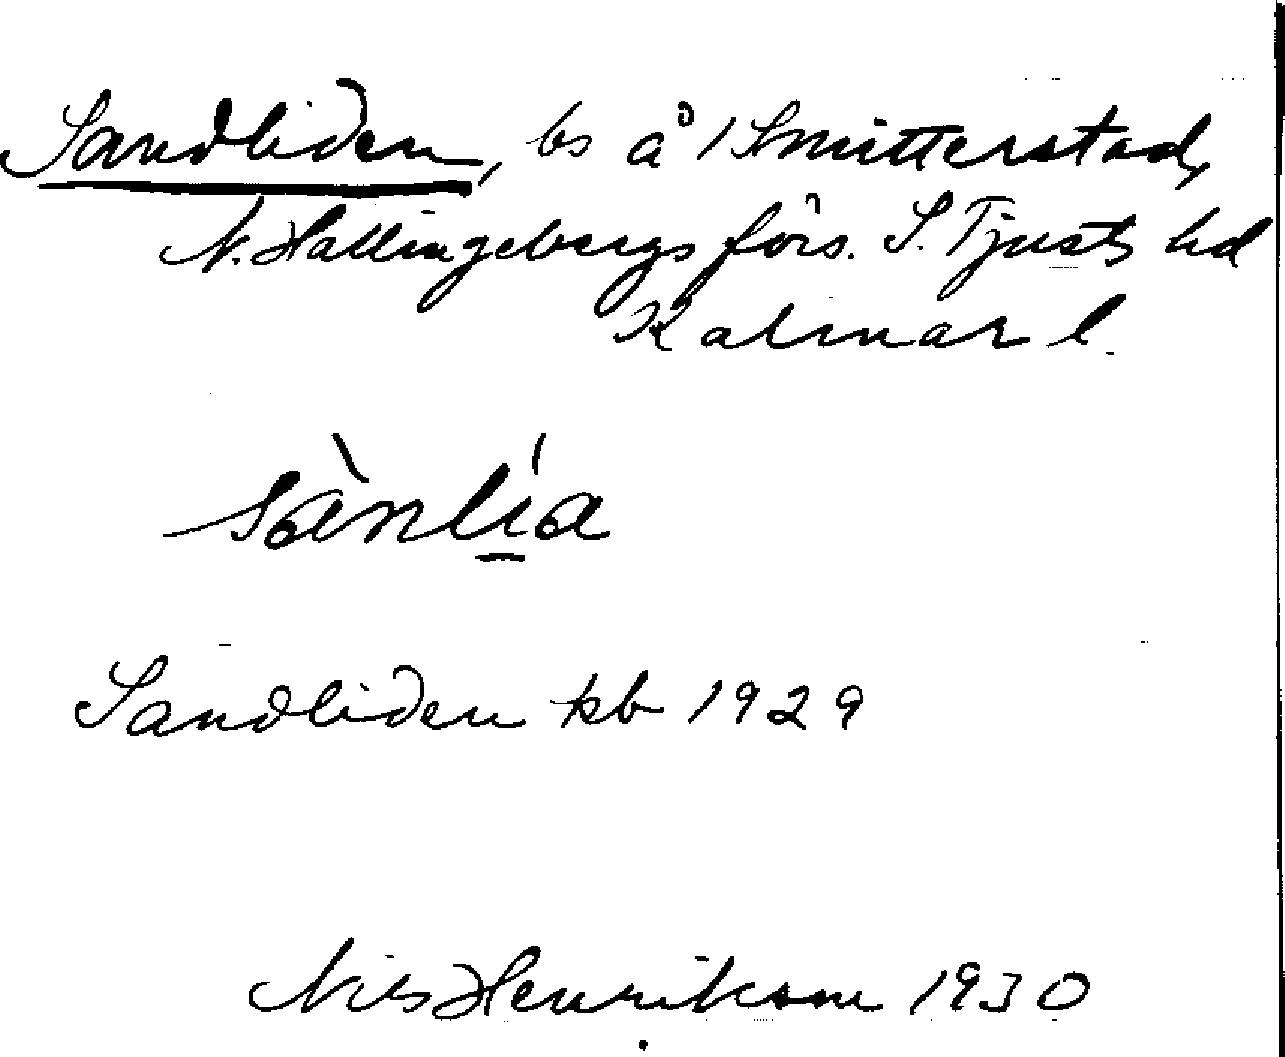 Sandliden, bs å 1 Smitterstad,
V. Hallingebergs förs. S. Tjusts hd
Kalmar l.
sànlía
Sandliden kb 1929
Nils Henrikson 1930